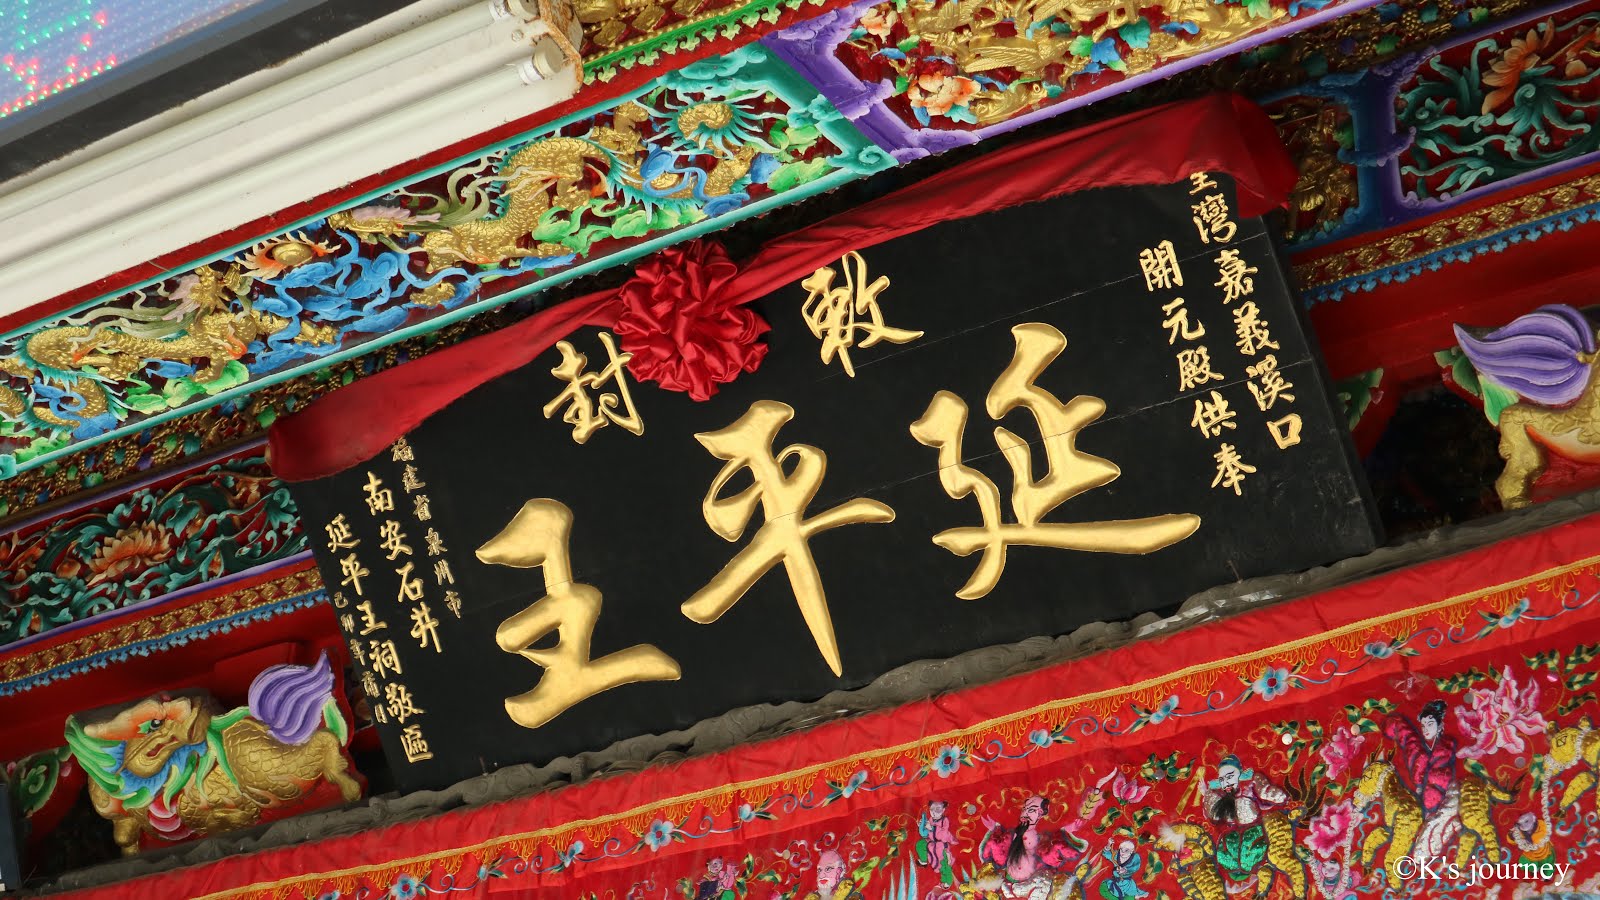 臺灣嘉義溪口
開元殿供奉
敕封
延平王
福建省泉州市
南安石井
延平王祠敬匾
己卯年蒲月
©K's journey